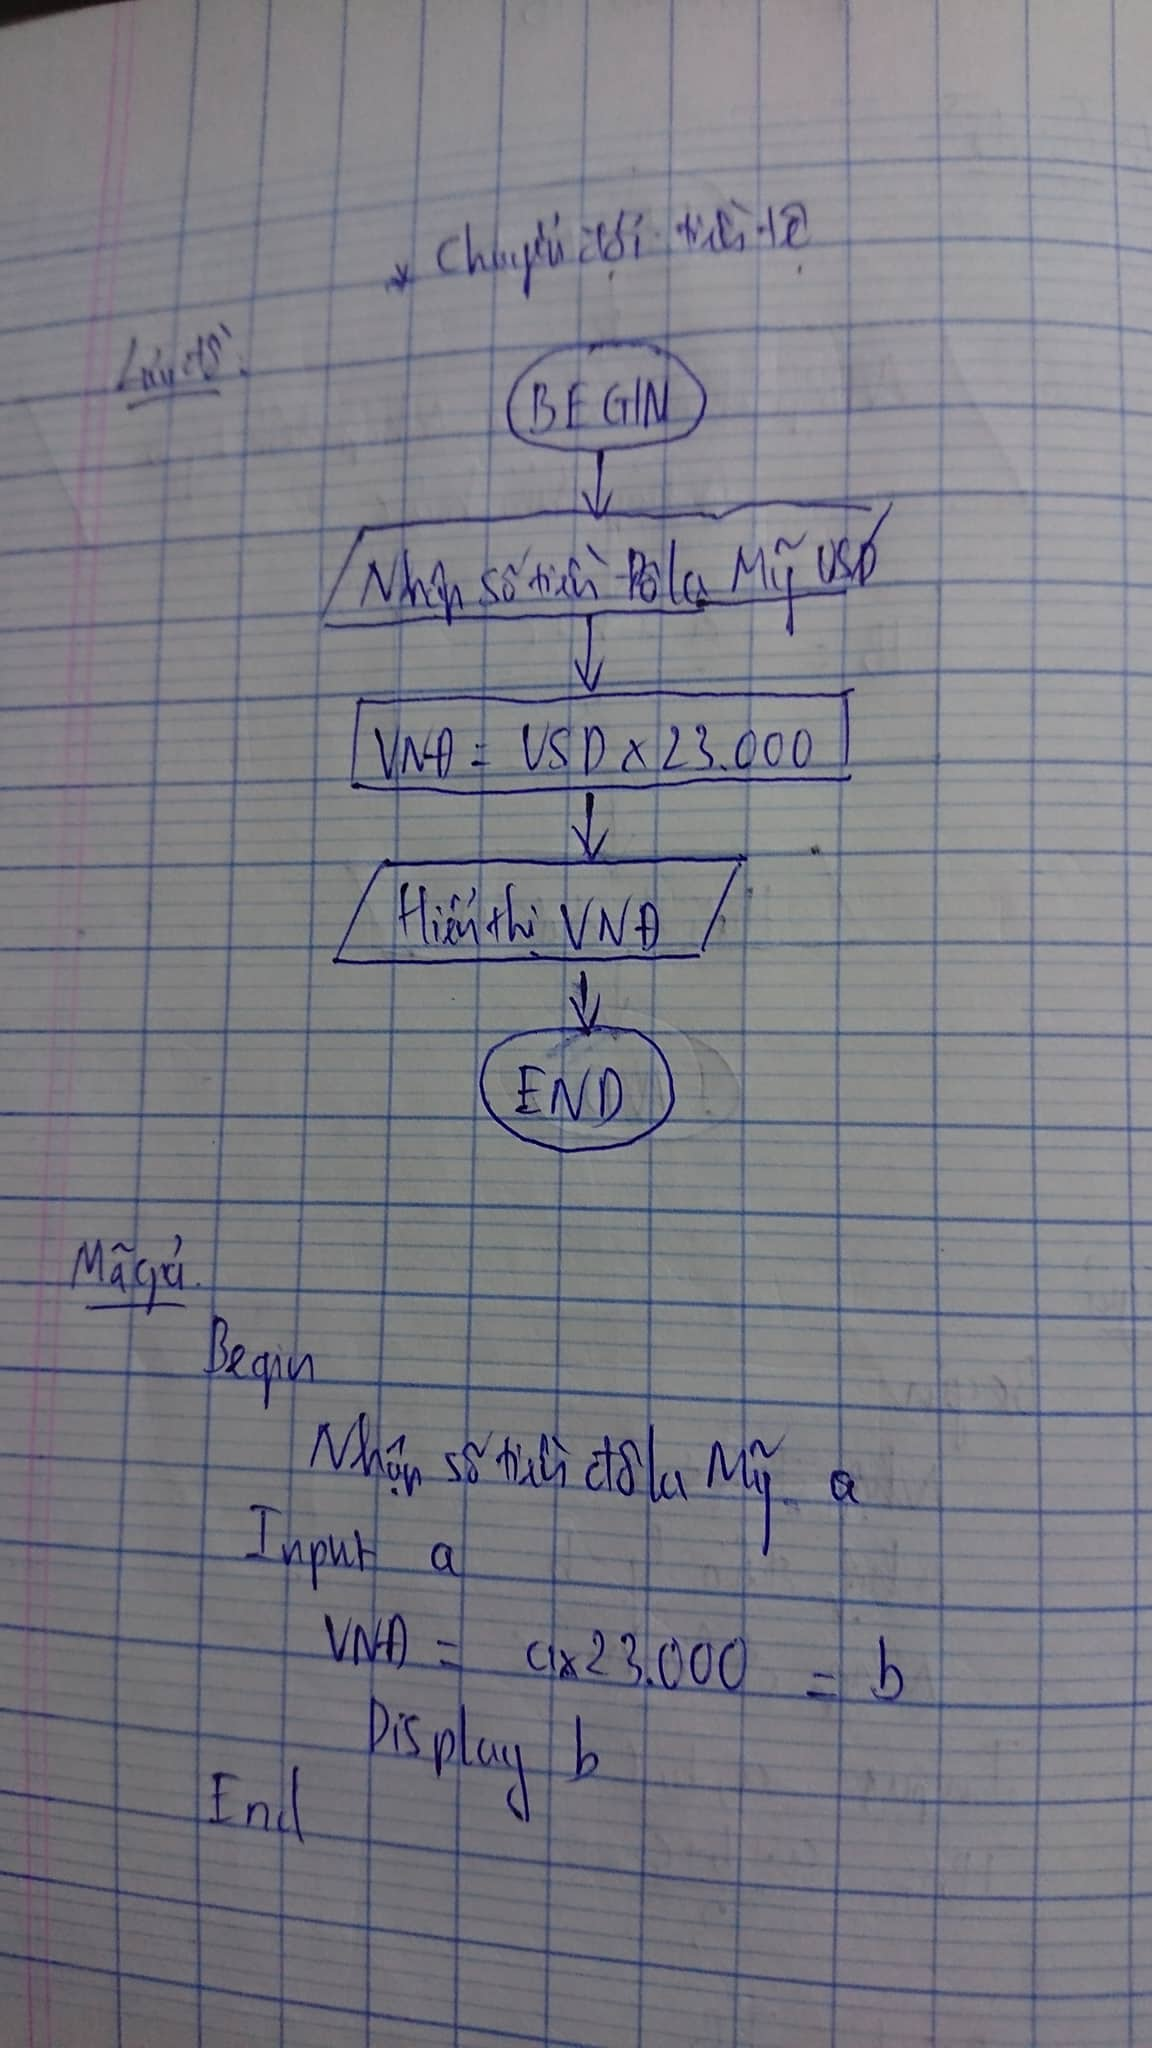 * Chuyển đổi tiền tệ
Lưu đồ:
BEGIN
Nhập số tiền Đô la Mỹ USD
VNĐ = USD x 23.000
Hiển thị VNĐ
END
Mã giả.
Begin
Nhập số tiền đô la Mỹ a
Input a
VNĐ = a x 23.000 = b
Display b
End